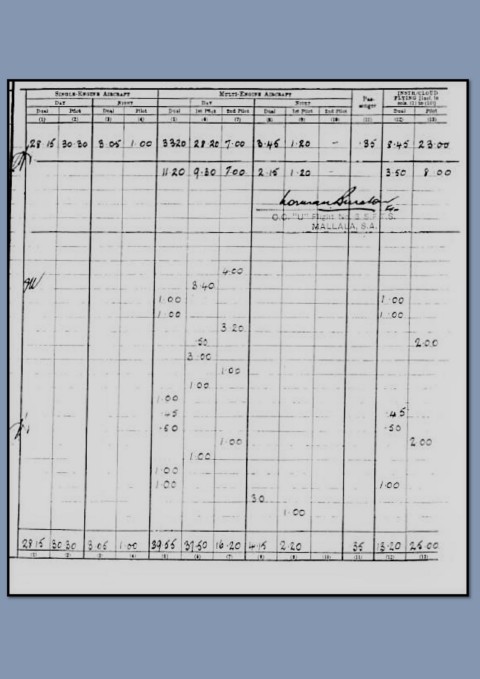 SINGLE-ENGINE AIRCRAFT MULTI-ENGINE AIRCRAFT Pas-senger INSTR/CLOUD FLYING [Incl. in cols. (1) to (10)]
DAY NIGHT DAY NIGHT
Dual Pilot Dual Pilot Dual 1st Pilot 2nd Pilot Dual 1st Pilot 2nd Pilot Dual Pilot
(1) (2) (3) (4) (5) (6) (7) (8) (9) (10) (11) (12) (13)
28.15 30.30 3.05 1.00 33.20 28.20 7.00 3.45 1.20 - .35 8.45 23.00
11.20 9.30 7.00 2.15 1.20 - 3.50 8.00
O.C. "U" Flight No. 6 S.F.T.S.
MALLALA, S.A.
4.00
3.40
1.00 1.00
1.00 1.00
3.20
.50 2.00
3.00
1.00
1.00
1.00
.45 .45
.50 .50
1.00 2.00
1.00
1.00
1.00 1.00
30
1.00
28.15 30.30 3.05 1.00 39.55 37.50 16.20 4.15 2.20 35 13.20 25.00
(1) (2) (3) (4) (5) (6) (7) (8) (9) (10) (11) (12) (13)